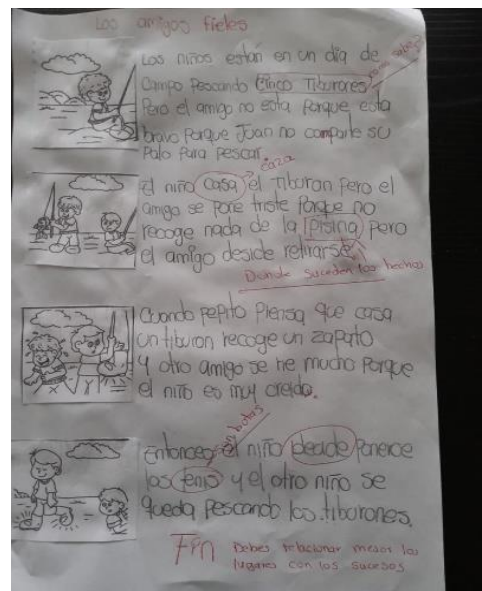 Los amigos fieles
Los niños estan en un dia de
Campo Pescando Cinco Tiburones
Pero el amigo no esta Porque esta
bravo Porque Juan no comparte su
Palo Para Pescar.
caza
El niño casa el Tiburon Pero el
amigo se pone triste Porque no
recoge nada de la Pisina Pero
el amigo deside retirarse
Donde suceden los hechos
Cuando Pepito Piensa que casa
un tiburon recoge un zapato
y otro amigo se rie mucho Porque
el niño es muy creido.
son botas
Entonces el niño decide Ponerce
los tenis y el otro niño se
queda Pescando los tiburones.
Fin
Debes relacionar mejor los
lugares con los sucesos